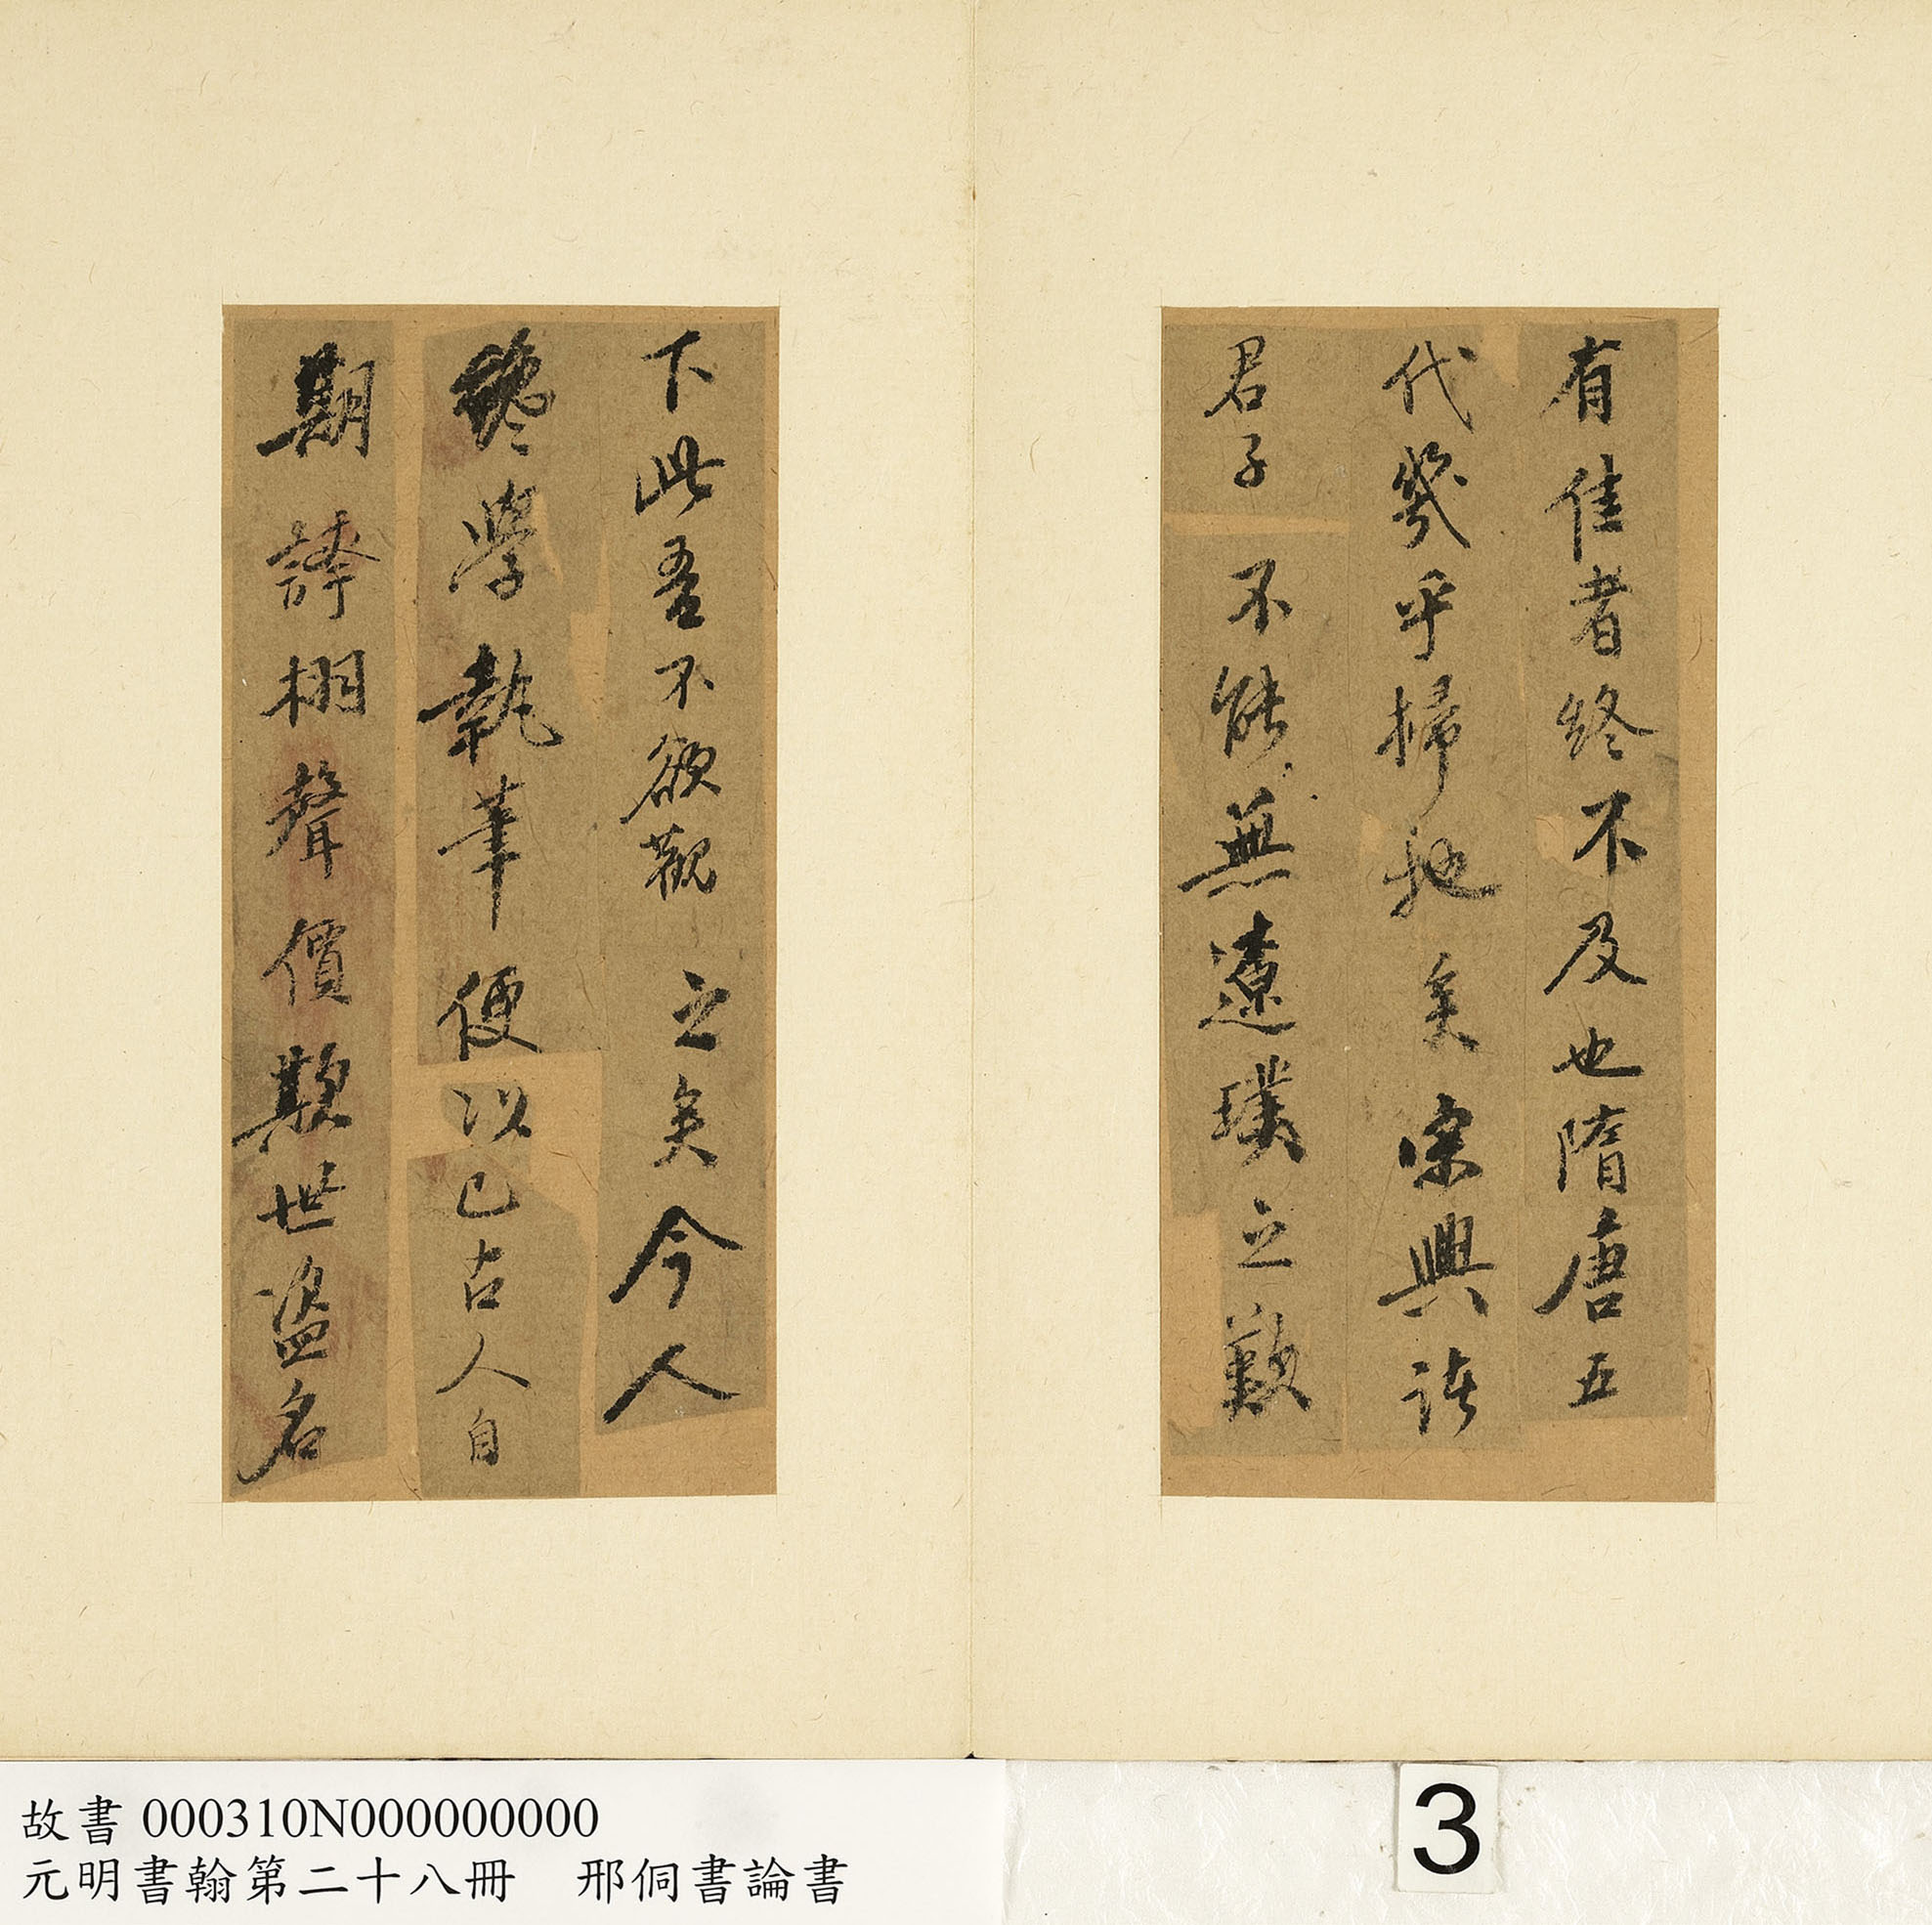 有佳者終不及也隋唐五
代幾乎掃地矣宋興諸
君子不能無遼璞之歎
下此吾不欲觀之矣今人
纔學執筆便以已古人自
期誇栩聲價欺世盜名
故書 000310N000000000
元明書翰第二十八冊 邢侗書論書
3